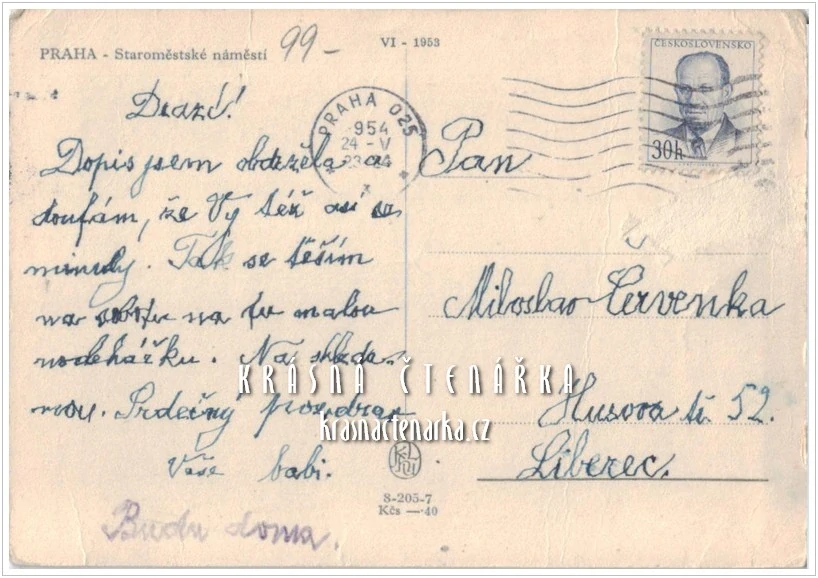 PRAHA - Staroměstské náměstí
99-
VI - 1953
ČESKOSLOVENSKO
30h
PRAHA 025
954
24 - V
Drazí!
Dopis jsem obdržela a
doufám, že Vy též
minuly. Tak se těším
na sobotu na tu malou
Na shleda-
nou. Srdečný pozdrav
Vaše babi.
Budu doma.
Pan
Miloslav Červenka
Husova tř. 52.
Liberec.
KRÁSNÁ ČTENÁŘKA
krasnactenarka.cz
8-205-7
Kčs —·40